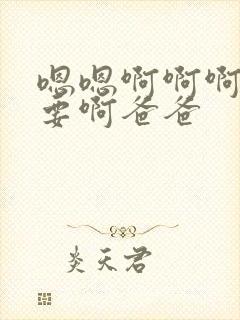 嗯嗯啊啊啊
要啊爸爸
炎天君